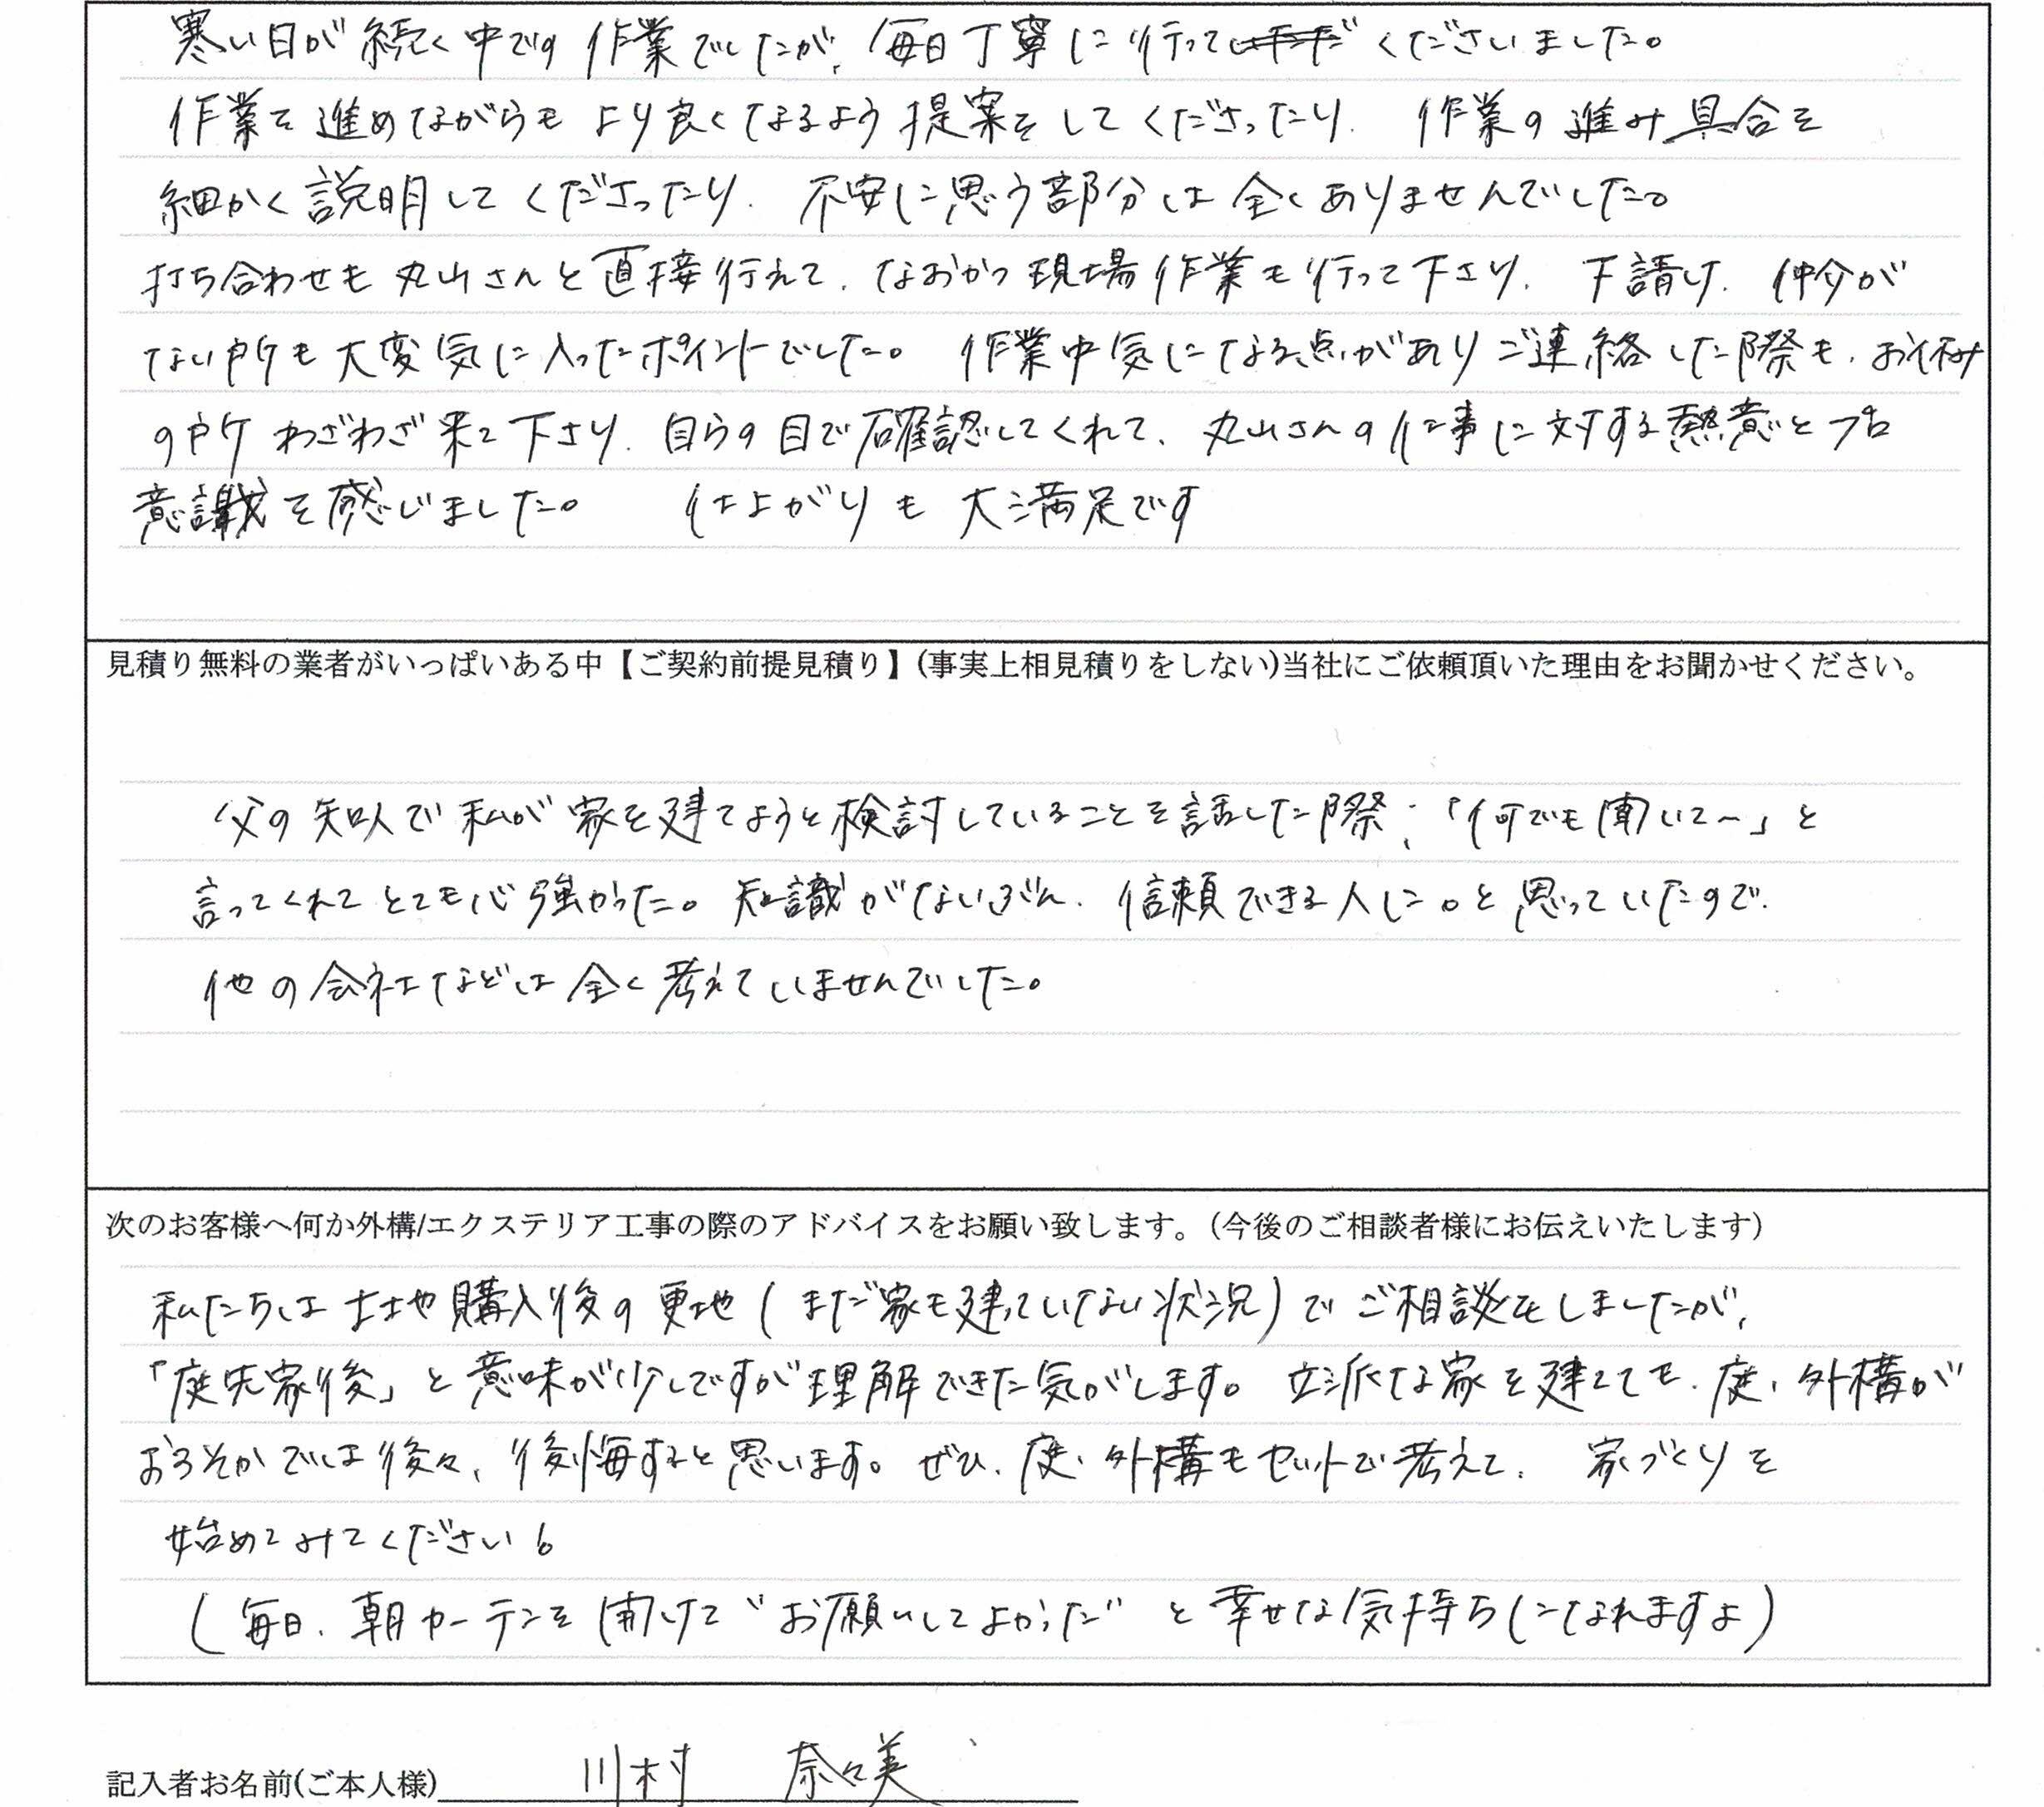 寒い日が続く中での作業でしたが、毎日丁寧に行ってくださいました。
作業を進めながらもより良くなるよう提案をしてくださったり、作業の進み具合を
細かく説明してくださったり、不安に思う部分は全くありませんでした。
打ち合わせも丸山さんと直接行えて、なおかつ現場作業も行って下さり、下請け、仲介が
ない所も大変気に入ったポイントでした。作業中気になる点がありご連絡した際も、お休み
の所わざわざ来て下さり、自らの目で確認してくれて、丸山さんの仕事に対する熱意とプロ
意識を感じました。仕上がりも大満足です
見積り無料の業者がいっぱいある中【ご契約前提見積り】(事実上相見積りをしない)当社にご依頼頂いた理由をお聞かせください。
父の知人で私が家を建てようと検討していることを話した際、「何でも聞いて～」と
言ってくれてとても心強かった。知識がないぶん、信頼できる人に。と思っていたので、
他の会社などは全く考えていませんでした。
次のお客様へ何か外構/エクステリア工事の際のアドバイスをお願い致します。(今後のご相談者様にお伝えいたします)
私たちは土地購入後の更地(まだ家も建っていない状況)でご相談をしましたが、
「庭先家後」と意味が少しですが理解できた気がします。立派な家を建てても、庭、外構が
おろそかでは後々、後悔すると思います。ぜひ、庭、外構もセットで考えて、家づくりを
始めてみてください。
(毎日、朝カーテンを開けて"お願いしてよかった"と幸せな気持ちになれますよ)
記入者お名前(ご本人様) 川村 奈々美